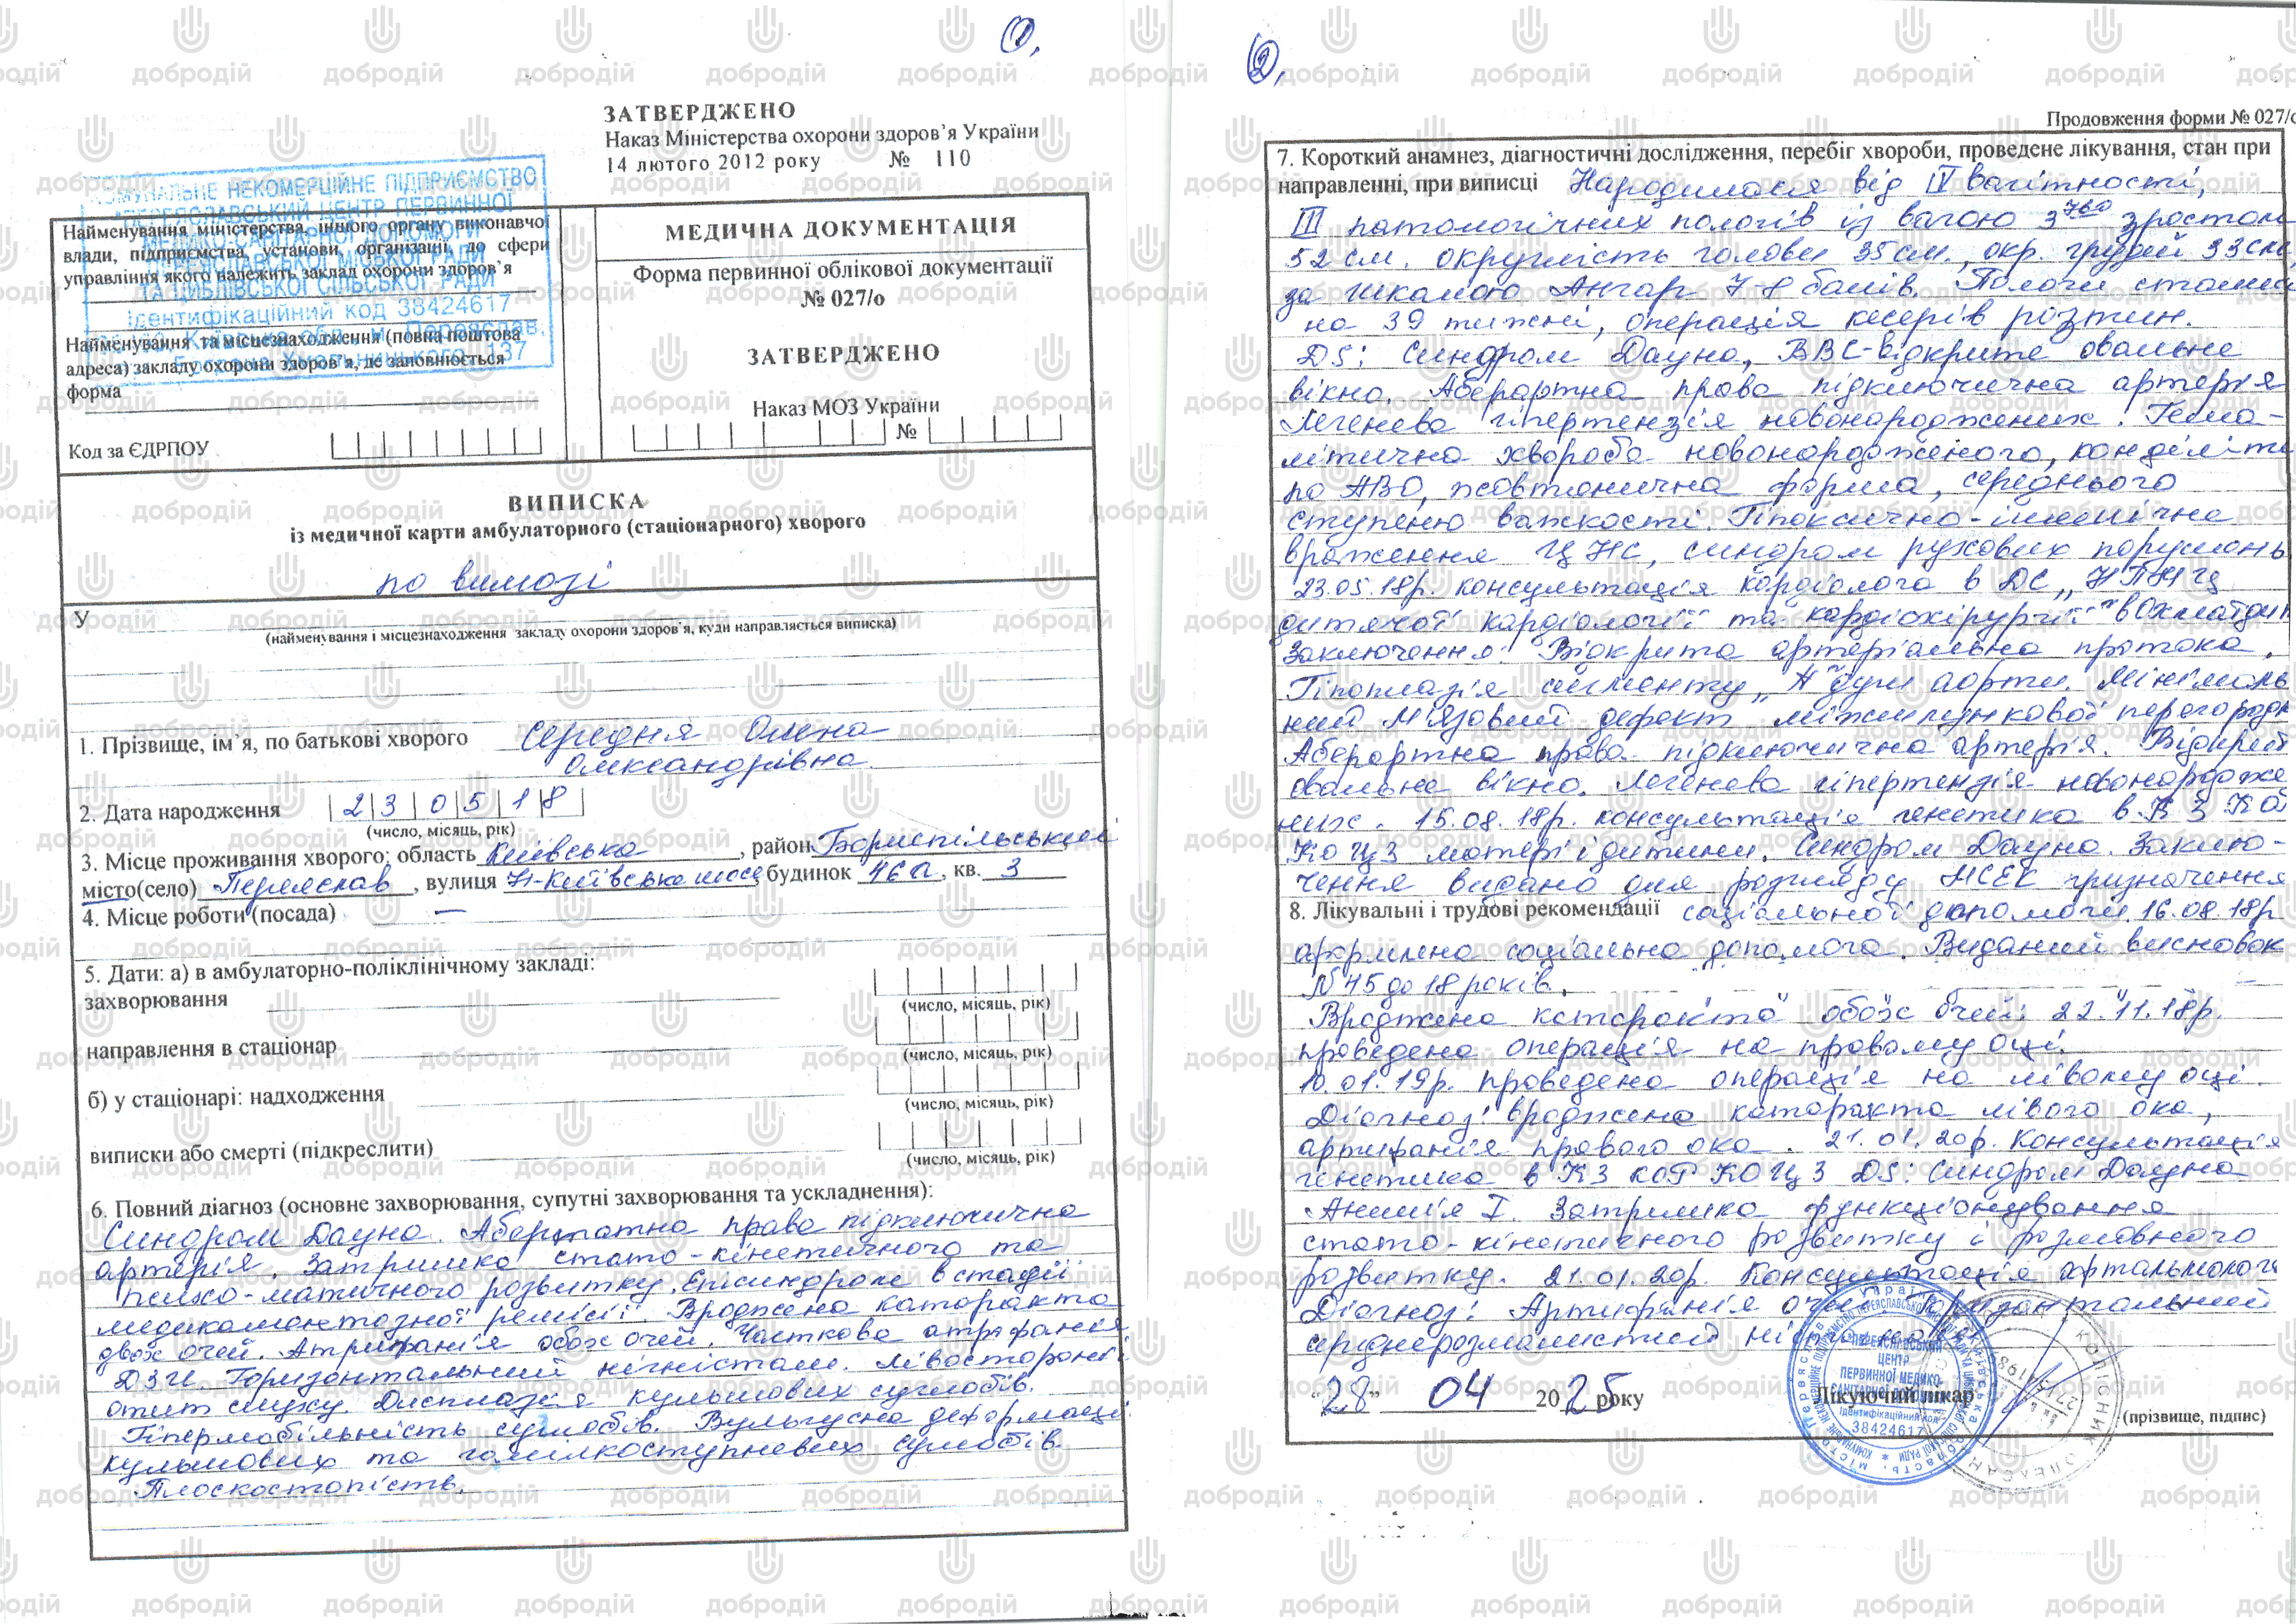 1.
ЗАТВЕРДЖЕНО
Наказ Міністерства охорони здоров’я України
14 лютого 2012 року № 110
КОМУНАЛЬНЕ НЕКОМЕРЦІЙНЕ ПІДПРИЄМСТВО
"ПЕРЕЯСЛАВСЬКИЙ ЦЕНТР ПЕРВИННОЇ
МЕДИКО-САНІТАРНОЇ ДОПОМОГИ
ПЕРЕЯСЛАВСЬКОЇ МІСЬКОЇ РАДИ
ТА ЦИБЛІВСЬКОЇ СІЛЬСЬКОЇ РАДИ
Ідентифікаційний код 38424617
Київська обл., м. Переяслав,
Богдана Хмельницького, 137
Найменування міністерства, іншого органу виконавчої
влади, підприємства, установи, організації, до сфери
управління якого належить заклад охорони здоров’я
Найменування та місцезнаходження (повна поштова
адреса) закладу охорони здоров’я, де заповнюється
форма
Код за ЄДРПОУ
МЕДИЧНА ДОКУМЕНТАЦІЯ
Форма первинної облікової документації
№ 027/о
ЗАТВЕРДЖЕНО
Наказ МОЗ України
№
ВИПИСКА
із медичної карти амбулаторного (стаціонарного) хворого
по вимозі
У
(найменування і місцезнаходження закладу охорони здоров’я, куди направляється виписка)
1. Прізвище, ім’я, по батькові хворого Середня Олена
Олександрівна
2. Дата народження 23 05 18
(число, місяць, рік)
3. Місце проживання хворого: область Київська, район Бориспільський
місто(село) Переяслав, вулиця Н-Київське шосе, будинок 46а, кв. 3
4. Місце роботи (посада) —
5. Дати: а) в амбулаторно-поліклінічному закладі:
захворювання
(число, місяць, рік)
направлення в стаціонар
(число, місяць, рік)
б) у стаціонарі: надходження
(число, місяць, рік)
виписки або смерті (підкреслити)
(число, місяць, рік)
6. Повний діагноз (основне захворювання, супутні захворювання та ускладнення):
Синдром Дауна. Аберантна права підключична
артерія. Затримка стато-кінетичного та
психо-мативного розвитку. Епісиндром в стадії
медикаментозної ремісії. Вроджена катаракта
двох очей. Атрифакія обох очей. Часткова атрофанія
ДЗН. Горизонтальний ністагм. Лівосторонній
отит слуху. Дисплазія кульшових суглобів.
Гіпермобільність суглобів. Вульгусна деформація
кульшових та гомілкоступневих суглобів.
Плоскостопість.
2.
Продовження форми № 027/о
7. Короткий анамнез, діагностичні дослідження, перебіг хвороби, проведене лікування, стан при
направленні, при виписці Народилася від IV вагітності,
III патологічних пологів із вагою 3760 зростом
52 см. округлість голови 35 см., окр. грудей 33 см,
за шкалою Апгар 7-8 балів. Пологи стались
на 39 тижні, операція кесерів розтин.
DS: Синдром Дауна, ВВС-відкрите овальне
вікно. Аберартна права підключична артерія
Легенева гіпертензія новонароджених. Гемо-
літична хвороба новонародженого,
по АВО, жовтянична форма, середнього
ступеню важкості. Гіпоксично-ішемічне
враження ЦНС, синдром рухових порушень
23.05.18р. консультація кардіолога в ДС „НПМЦ
дитячої кардіології та кардіохірургії" в Охматдит
Заключення: Відкрита артеріальна протока.
Гіпоплазія сигменту „А" дуги аорти. Мінімаль
ний М'язовий дефект міжшлункової перегородки
Аберартна права підключична артерія. Відкрит
овальне вікно. Легенева гіпертензія новонародже
них. 15.08.18р. консультація генетика в КЗ КОР
КОЦЗ матері і дитини. Синдром Дауна. Заклю-
чення видано для розгляду МСЕК призначення
8. Лікувальні і трудові рекомендації соціальної допомоги. 16.08.18р.
оформлена соціальна допомога. Виданий висновок
№45 до 18 років.
Вроджена катаракта обох очей: 22.11.18р.
проведена операція на правому оці.
10.01.19р. проведена операція на лівому оці.
Діагноз: вроджена катаракта лівого ока,
артифакія правого ока. 21.01.20р. Консультація
генетика в КЗ КОР КОЦЗ DS: Синдром Дауна
Анемія I. Затримка функціонування
стато-кінетичного розвитку і розмовного
розвитку. 21.01.20р. Консультація офтальмолога
Діагноз: Артифакія очей. Горизонтальний
середнерозмашистий ністагм.
"28" 04 2025 року
Лікуючий лікар
(прізвище, підпис)
ПЕРЕЯСЛАВСЬКИЙ
ЦЕНТР
ПЕРВИННОЇ МЕДИКО-
САНІТАРНОЇ ДОПОМОГИ
Ідентифікаційний код
38424617
добродій